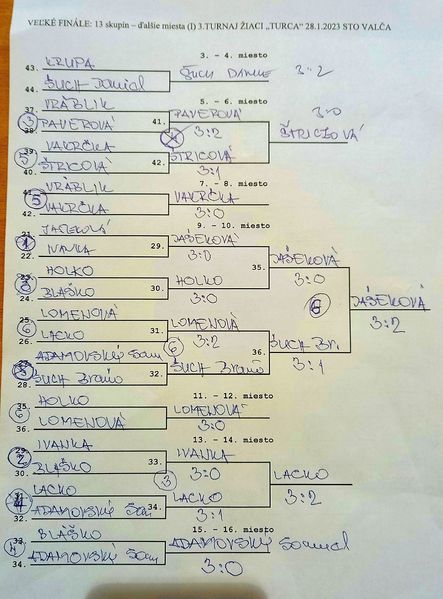 VEĽKÉ FINÁLE: 13 skupín – ďalšie miesta (I) 3.TURNAJ ŽIACI „TURCA“ 28.1.2023 STO VALČA
3. - 4. miesto
43. KRUPA
ŠUCH DANIEL 3:2
44. ŠUCH Daniel
5. - 6. miesto
37. VRÁBLIK
41. PAVEROVÁ
3:0
3 PAVEROVÁ
38. 3:2
ŠTRICOVÁ
39. VAKRČKA
42. ŠTRICOVÁ
5 ŠTRICOVÁ
40. 3:1
7. - 8. miesto
41. VRÁBLIK
5 VAKRČKA
42. VAKRČKA
3:0
9. - 10. miesto
21. JAŠEKOVÁ
29. JAŠEKOVÁ
22. IVANKA
3:0
35. JAŠEKOVÁ
23. HOLKO
3:0
30. HOLKO
24. BLAŠKO
3:0
6 JAŠEKOVÁ
25. LOMENOVÁ
3:2
6 31. LOMENOVÁ
26. LACKO
3:2
36. ŠUCH Br.
27. ADAMOVSKÝ Sam
6 3:1
32. ŠUCH Braňo
28. ŠUCH Braňo
11. - 12. miesto
35. HOLKO
6 LOMENOVÁ
36. LOMENOVÁ
3:0
13. - 14. miesto
29. IVANKA
2 33. IVANKA
30. BLAŠKO
3:0
3 LACKO
31. LACKO
3:2
4 34. LACKO
32. ADAMOVSKÝ Sam
3:1
15. - 16. miesto
33. BLAŠKO
4 ADAMOVSKÝ Samuel
34. ADAMOVSKÝ Sam
3:0